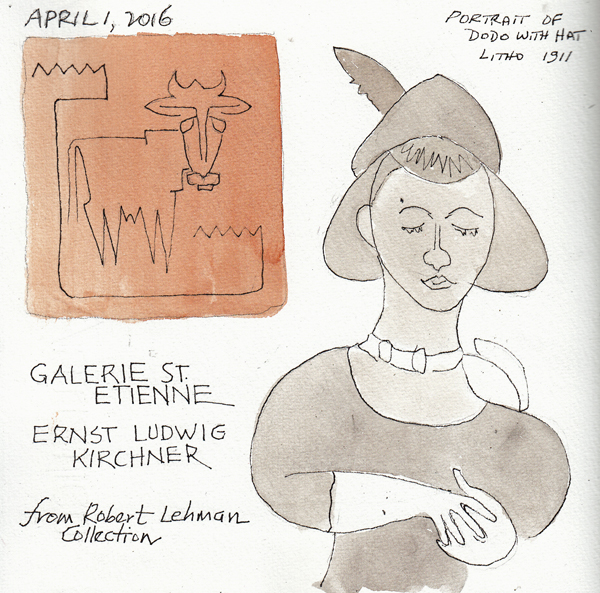 APRIL 1, 2016
PORTRAIT OF
DODO WITH HAT
LITHO 1911
GALERIE ST.
ETIENNE
ERNST LUDWIG
KIRCHNER
from Robert Lehman
Collection